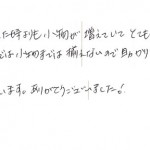 た時よりも小物が増えていてとても
では小物までは揃えないので助かり
います。ありがとうございました!